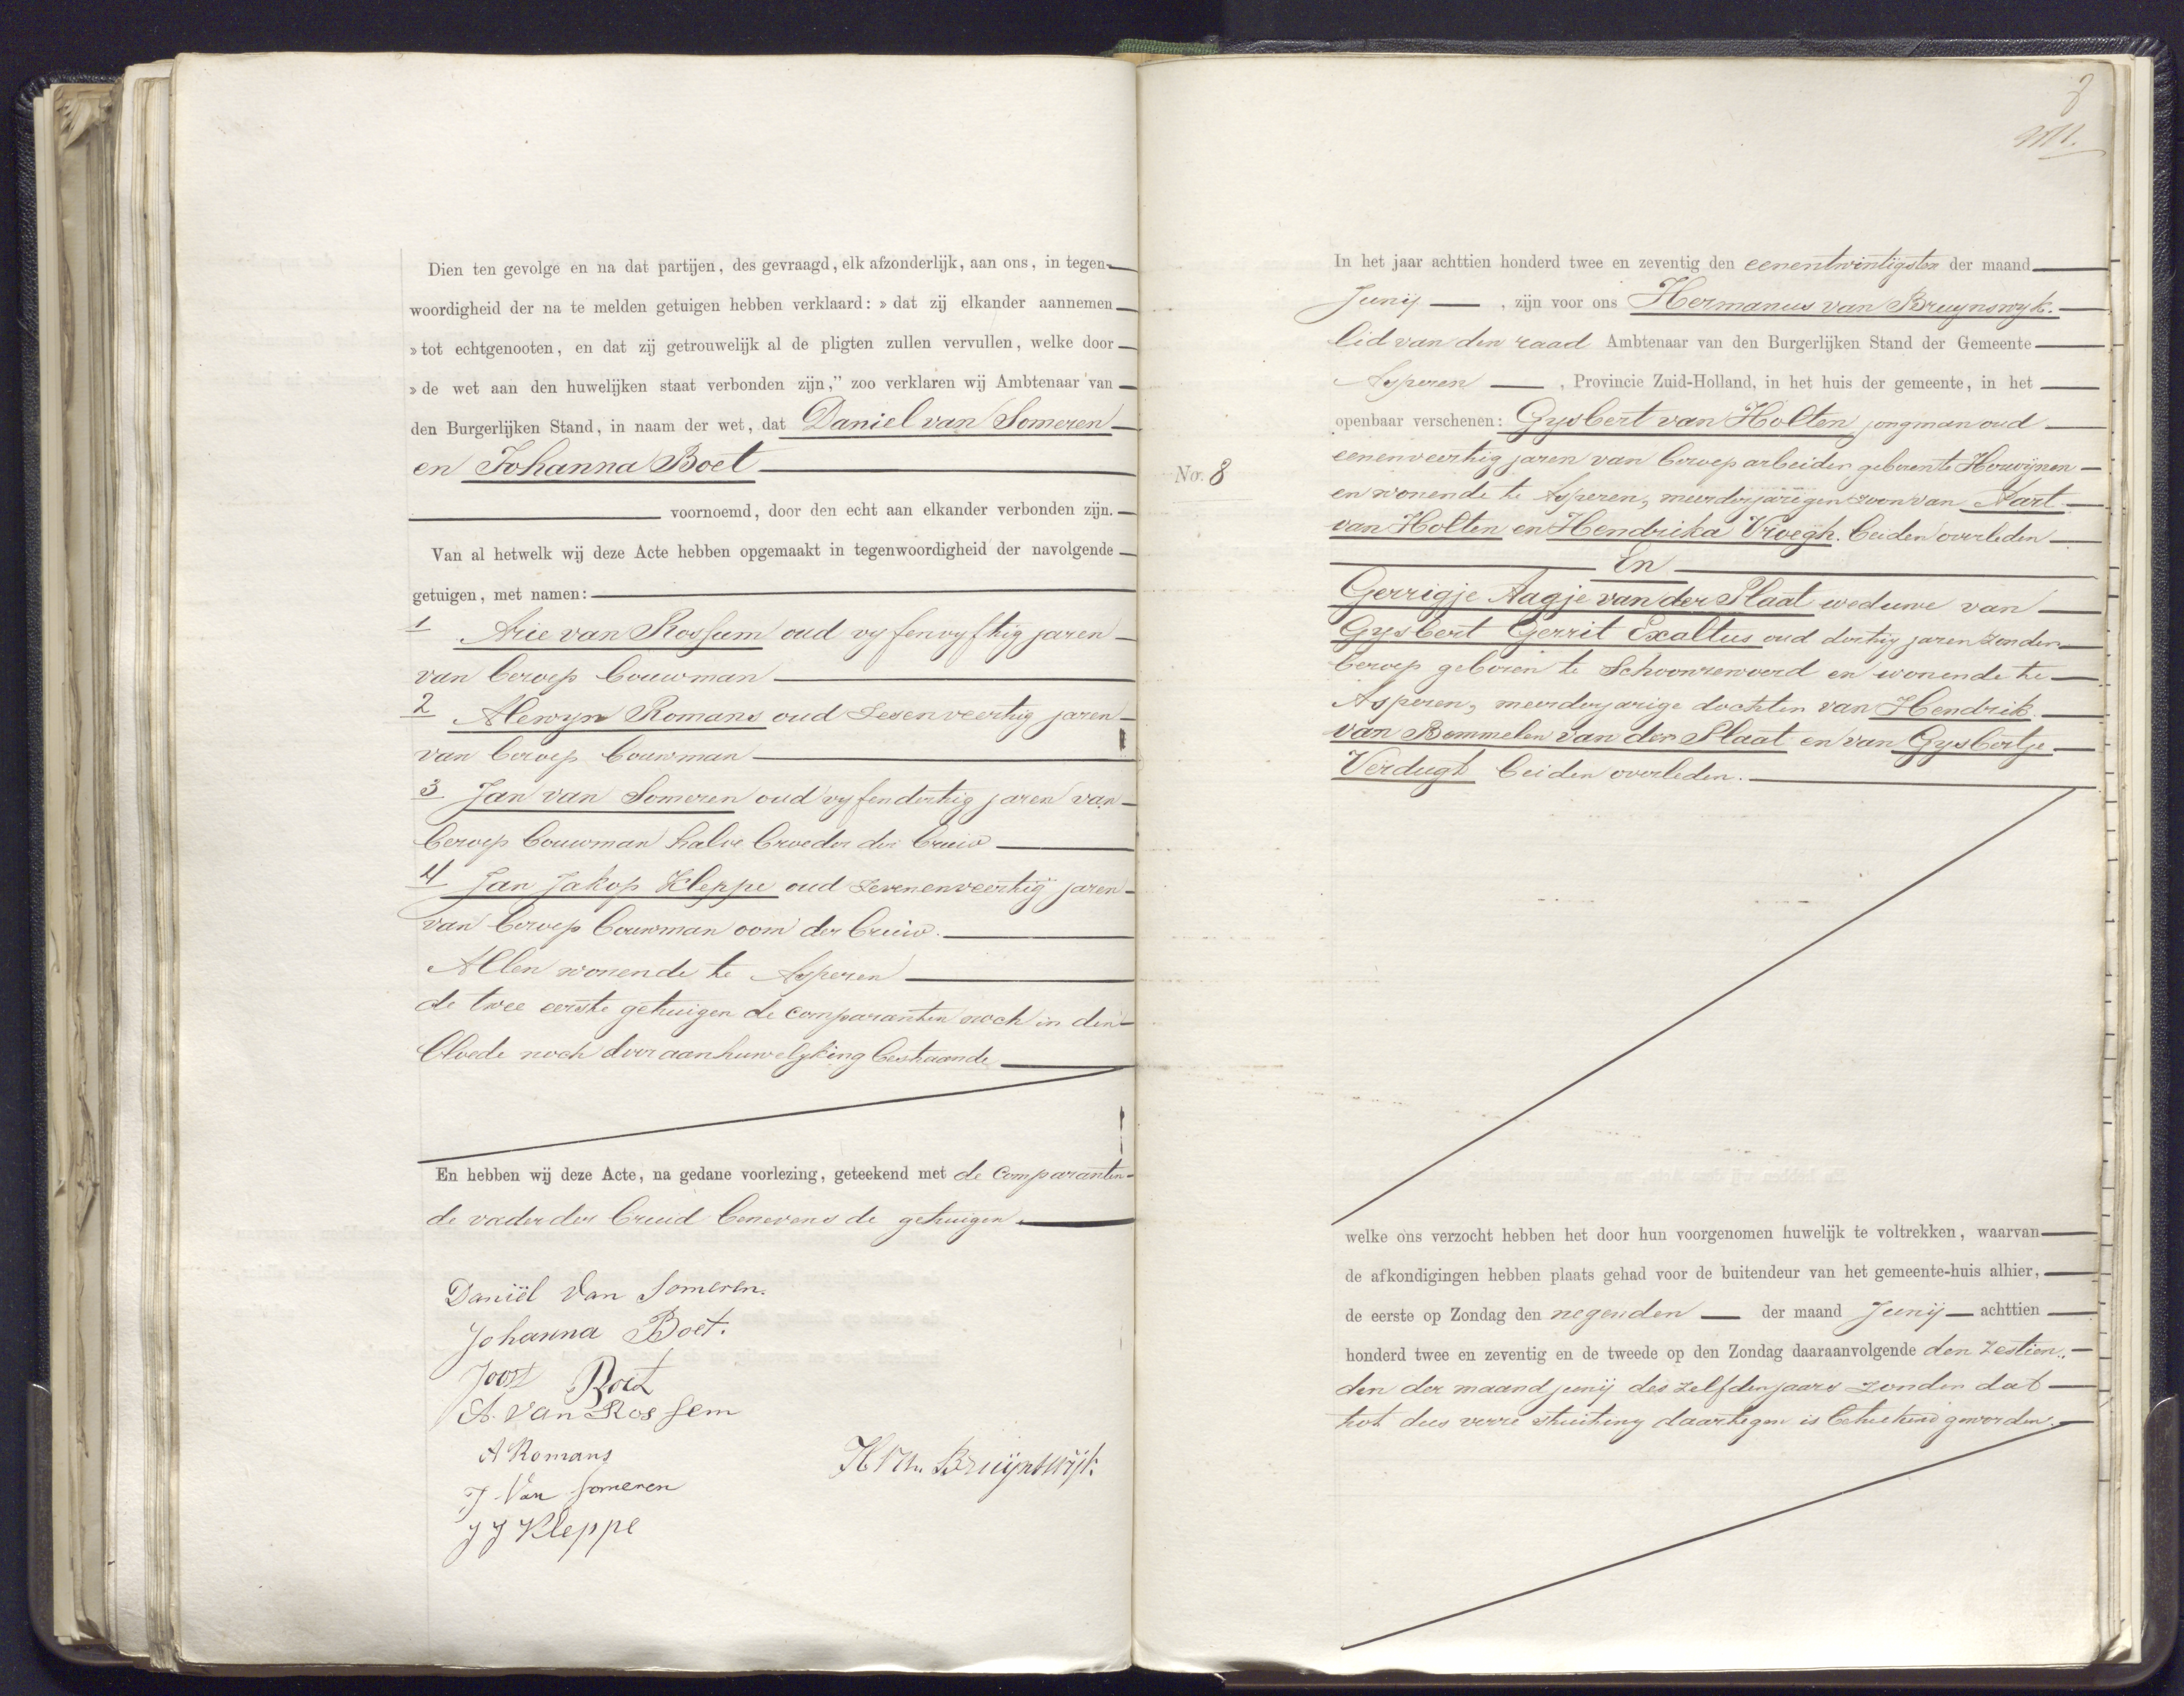 Dien ten gevolge en na dat partijen, des gevraagd, elk afzonderlijk, aan ons, in tegen-
woordigheid der na te melden getuigen hebben verklaard: » dat zij elkander aannemen
» tot echtgenooten, en dat zij getrouwelijk al de pligten zullen vervullen, welke door
» de wet aan den huwelijken staat verbonden zijn," zoo verklaren wij Ambtenaar van
den Burgerlijken Stand, in naam der wet, dat Daniel van Someren
en Johanna Boet
voornoemd, door den echt aan elkander verbonden zijn.
Van al hetwelk wij deze Acte hebben opgemaakt in tegenwoordigheid der navolgende
getuigen, met namen:
1 Arie van Rossum oud vyfenvyftig jaren
van beroep bouwman
2 Alewyn Romans oud Sesenveertig jaren
van beroep bouwman
3 Jan van Someren oud vyfendertig jaren van
beroep bouwman halve broeder der bruid
4 Jan Jakop Kleppe oud zevenenveertig jaren
van beroep bouwman oom der bruid.
Allen wonende te Asperen
de twee eerste getuigen de comparanten noch in den
bloede noch door aanhuwelyking bestaande
En hebben wij deze Acte, na gedane voorlezing, geteekend met de Comparanten
de vader der bruid benevens de getuigen.
Daniël van Someren.
Johanna Boet.
Joost Boet
A. van Rossem
A Romans
H Vn. Bruijnswijk
J. Van Someren
J J Kleppe
8
In het jaar achttien honderd twee en zeventig den eenentwintigsten der maand
Junij, zijn voor ons Hermanus van Bruynswyk.
lid van den raad Ambtenaar van den Burgerlijken Stand der Gemeente
Asperen, Provincie Zuid-Holland, in het huis der gemeente, in het
openbaar verschenen: Gysbert van Holten jongman oud
No. 8
eenenveertig jaren van beroep arbeider geboren te Herwijnen
en wonende te Asperen, meerderjarigen zoon van Aart
van Holten en Hendrika Vroegh. beiden overleden
En
Gerrigje Aagje van der Plaat weduwe van
Gysbert Gerrit Exaltus oud dertig jaren zonder
beroep geboren te Schoonrewoerd en wonende te
Asperen, meerderjarige dochter van Hendrik
van Bommelen van der Plaat en van Gysbertje
Verdugt beiden overleden.
welke ons verzocht hebben het door hun voorgenomen huwelijk te voltrekken, waarvan
de afkondigingen hebben plaats gehad voor de buitendeur van het gemeente-huis alhier,
de eerste op Zondag den negenden der maand Junij achttien
honderd twee en zeventig en de tweede op den Zondag daaraanvolgende den zestien
den der maand junij des zelfden jaars zonder dat
tot dus verre stuiting daartegen is beteekend geworden.